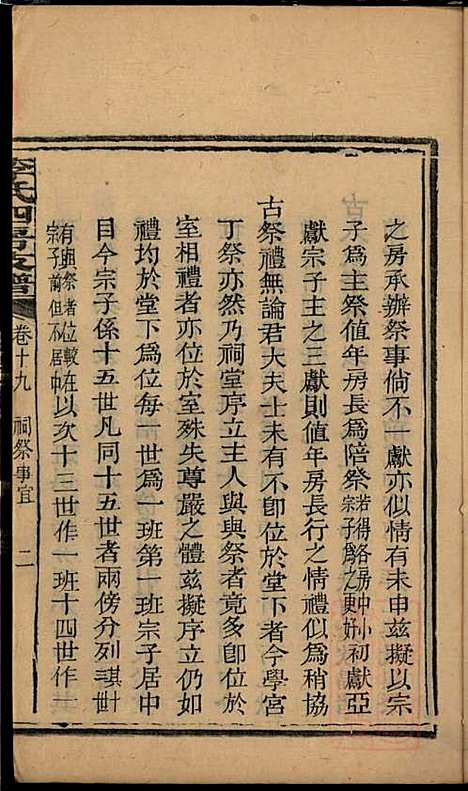 之房承辦祭事倘不一獻亦似情有未申茲擬以宗
子爲主祭值年房長爲陪祭若得各房中小宗子爲之更好初獻亞
獻宗子主之三獻則值年房長行之情禮似爲稍協
古祭禮無論君大夫士未有不卽位於堂下者今學宮
丁祭亦然乃祠堂序立主人與與祭者竟多卽位於
室相禮者亦位於室殊失尊嚴之體茲擬序立仍如
禮均於堂下爲位每一世爲一班第一班宗子居中
目今宗子係十五世凡同十五世者兩傍分列謀世
有與祭者位較在宗子前但不居中以次十三世作一班十四世作一
李氏四房支譜
卷十九
祠祭事宜
二